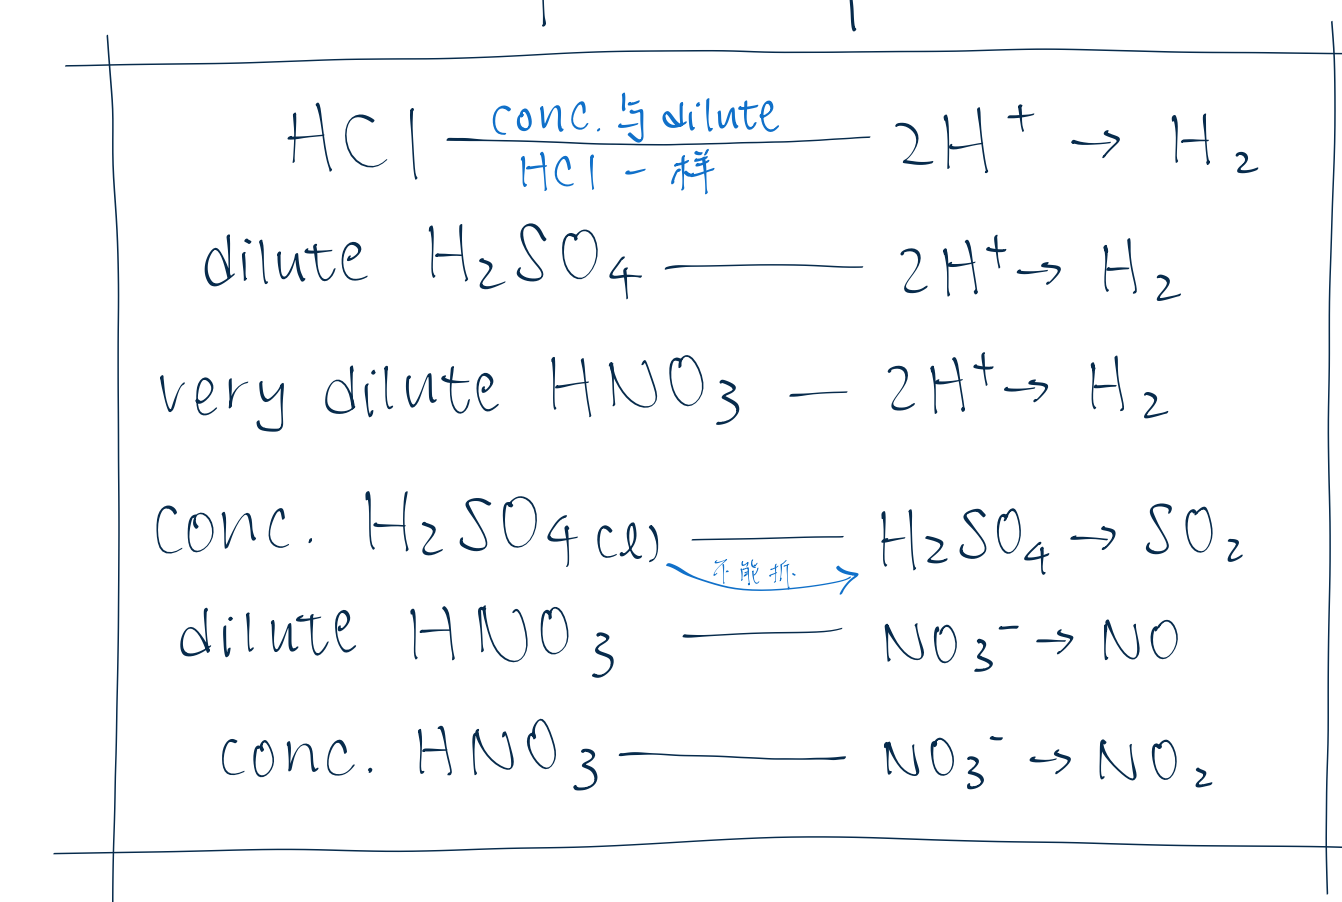 HCl conc.与dilute 2H⁺ → H₂
HCl一样
dilute H₂SO₄ — 2H⁺ → H₂
very dilute HNO₃ — 2H⁺ → H₂
conc. H₂SO₄(l) — H₂SO₄ → SO₂
不能拆
dilute HNO₃ — NO₃⁻ → NO
conc. HNO₃ — NO₃⁻ → NO₂